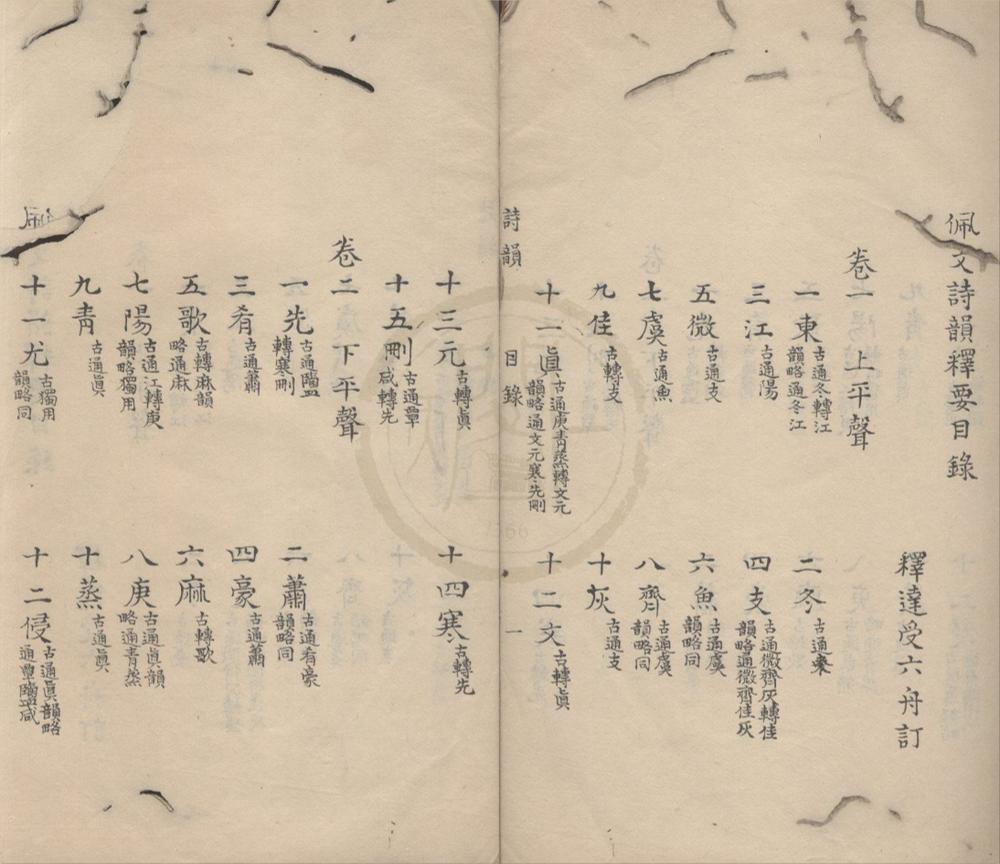 佩文詩韻釋要目錄
釋達受六舟訂
卷一 上平聲
一東 古通冬轉江韻略通冬江
二冬 古通東
三江 古通陽
四支 古通微齊灰轉佳韻略通微齊佳灰
五微 古通支
六魚 古通虞韻略同
七虞 古通魚
八齊 古通虞韻略同
九佳 古轉支
十灰 古通支
十一眞 古通庚青蒸轉文元韻略通文元寒先刪
十二文 古轉眞
詩韻 目錄 一
十三元 古轉眞
十四寒 古轉先
十五刪 古通覃咸轉先
卷二 下平聲
一先 古通鹽轉寒刪
二蕭 古通肴豪韻略同
三肴 古通蕭
四豪 古通蕭
五歌 古轉麻韻略通麻
六麻 古轉歌
七陽 古通江轉庚韻略獨用
八庚 古通眞韻略通青蒸
九青 古通眞
十蒸 古通眞
十一尤 古獨用韻略同
十二侵 古通眞韻略通覃鹽咸